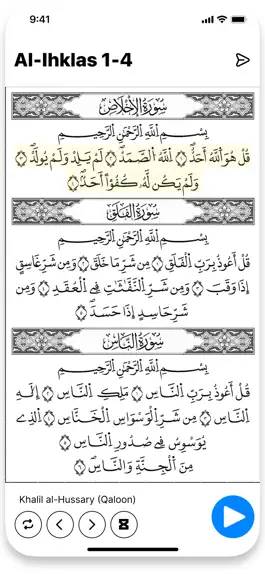 9:41
Al-Ihklas 1-4
سُورَةُ الإِخْلَاصِ
بِسْمِ اللَّهِ الرَّحْمَٰنِ الرَّحِيمِ
قُلْ هُوَ اللَّهُ أَحَدٌ ۝ اللَّهُ الصَّمَدُ ۝ لَمْ يَلِدْ وَلَمْ يُولَدْ ۝
وَلَمْ يَكُن لَّهُ كُفُؤًا أَحَدٌ ۝
سُورَةُ الْفَلَقِ
بِسْمِ اللَّهِ الرَّحْمَٰنِ الرَّحِيمِ
قُلْ أَعُوذُ بِرَبِّ الْفَلَقِ ۝ مِن شَرِّ مَا خَلَقَ ۝ وَمِن شَرِّ غَاسِقٍ
إِذَا وَقَبَ ۝ وَمِن شَرِّ النَّفَّاثَاتِ فِي الْعُقَدِ ۝ وَمِن
شَرِّ حَاسِدٍ إِذَا حَسَدَ ۝
سُورَةُ النَّاسِ
بِسْمِ اللَّهِ الرَّحْمَٰنِ الرَّحِيمِ
قُلْ أَعُوذُ بِرَبِّ النَّاسِ ۝ مَلِكِ النَّاسِ ۝ إِلَهِ
النَّاسِ ۝ مِن شَرِّ الْوَسْوَاسِ الْخَنَّاسِ ۝ الَّذِي
يُوَسْوِسُ فِي صُدُورِ النَّاسِ ۝
مِنَ الْجِنَّةِ وَالنَّاسِ ۝
Khalil al-Hussary (Qaloon)